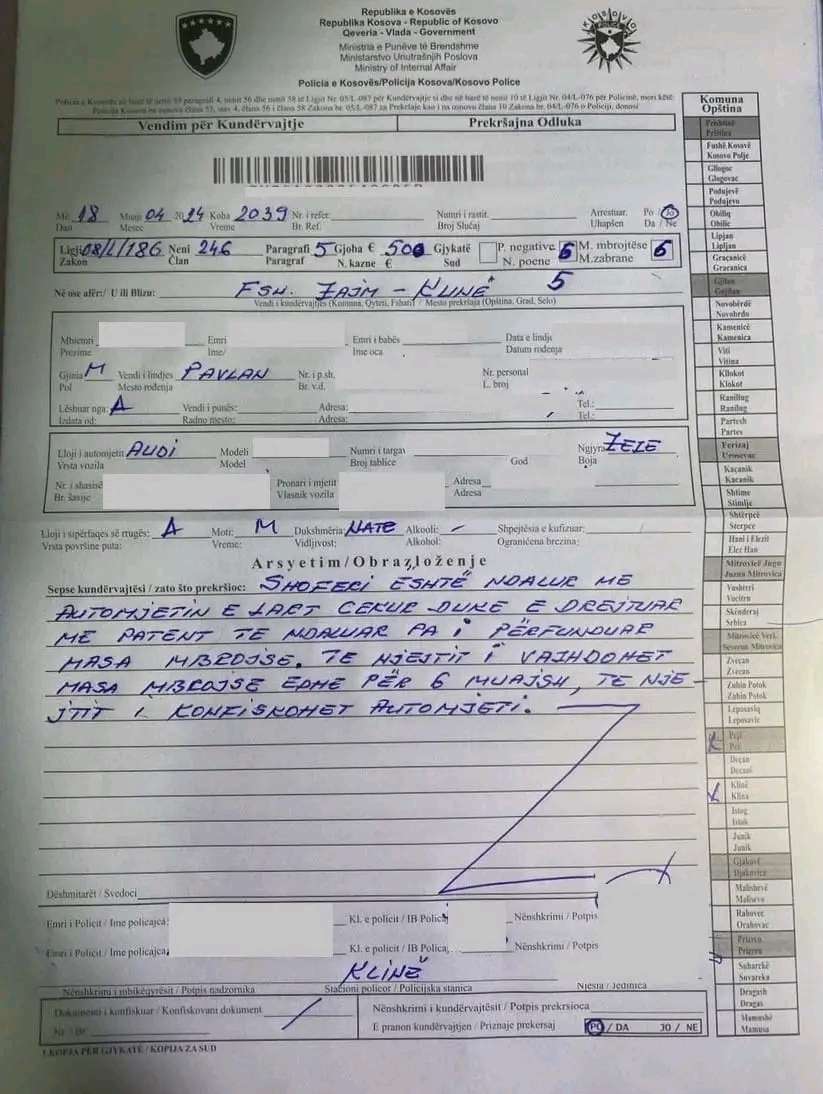 Republika e Kosovës
Republika Kosova - Republic of Kosovo
Qeveria - Vlada - Government
Ministria e Punëve të Brendshme
Ministarstvo Unutrašnjih Poslova
Ministry of Internal Affair
Policia e Kosovës/Policija Kosova/Kosovo Police
Vendim për Kundërvajtje Prekršajna Odluka
Më 18 Muaji 04 2024 Koha 2039 Nr. i refer. Numri i rastit. Arrestuar. Po / Jo
Dan Mesec Vreme Br. Ref. Broj Slučaj Uhapšen Da / Ne
Ligji 08/L/186 Neni 246 Paragrafi 5 Gjoba € 500 Gjykatë P. negative 6 M. mbrojtëse 6
Zakon Član Paragraf N. kazne € Sud N. poene M.zabrane
Në ose afër:/ U ili Blizu: FSH. ZAJM - KLINË 5
Vendi i kundërvajtjes (Komuna, Qyteti, Fshati) / Mesto prekršaja (Opština, Grad, Selo)
Mbiemri Emri Emri i babës Data e lindjs
Prezime Ime/ Ime oca Datum rođenja
Gjinia M Vendi i lindjes PAVLAN Nr. i p.sh. Nr. personal
Pol Mesto rođenja Br. v.d. L. broj
Lëshuar nga: A Vendi i punës: Adresa: Tel.:
Izdata od: Radno mesto: Adresa: Tel.:
Lloji i automjetit AUDI Modeli Numri i targav Ngjyra ZEZE
Vrsta vozila Model Broj tablice God Boja
Nr. i shasisë Pronari i mjetit Adresa
Br. šasije Vlasnik vozila Adresa
Lloji i sipërfaqes së rrugës: A Moti: M Dukshmëria: NATE Alkooli: - Shpejtësia e kufizuar:
Vrsta površine puta: Vreme: Vidljivost: Alkohol: Ograničena brezina:
Arsyetim/Obrazloženje
Sepse kundërvajtësi / zato što prekršioc: SHOFERI ËSHTË NDALUR ME
AUTOMJETIN E LART CEKUR DUKE E DREJTUAR
ME PATENT TE NDALUAR PA I PËRFUNDUAR
MASA MBROJSE. TE NJEJTIT I VAZHDOHET
MASA MBROJSE EDHE PËR 6 MUAJSH, TE NJE-
JTIT I KONFISKOHET AUTOMJETI.
Dëshmitarët / Svedoci
Emri i Policit / Ime policajca: Kl. e policit / IB Policaj Nënshkrimi / Potpis
Emri i Policit / Ime policajca: Kl. e policit / IB Policaj Nënshkrimi / Potpis
KLINË
Nënshkrimi i mbikëqyrësit / Potpis nadzornika Stacioni policor / Policijska stanica Njësia / Jedinica
Dokumenti i konfiskuar / Konfiskovani dokument Nënshkrimi i kundërvajtësit / Potpis prekrsioca
Nr. / Br. E pranon kundërvajtjen / Priznaje prekersaj PO / DA JO / NE
1 KOPJA PËR GJYKATË / KOPIJA ZA SUD
Komuna
Opština
Prishtinë
Priština
Fushë Kosavë
Kosovo Polje
Gllogoc
Glagovac
Podujevë
Podujevo
Obiliq
Obilić
Lipjan
Lipljan
Graçanicë
Gracanica
Gjilan
Gnjilan
Novobërdë
Novobrdo
Kamenicë
Kamenica
Viti
Vitina
Kllokot
Klokot
Ranillug
Ranilug
Partesh
Partes
Ferizaj
Urosevac
Kaçanik
Kacanik
Shtime
Stimlje
Shtërpcë
Sterpce
Hani i Elezit
Elez Han
Mitrovicë Jugu
Juzna Mitrovica
Vushtrri
Vucitrn
Skënderaj
Srbica
Mitrovicë Veri.
Severna Mitrovica
Zveçan
Zvecan
Zubin Potok
Zubin Potok
Leposaviq
Leposavic
Pejë
Peć
Deçan
Decani
Klinë
Klina
Istog
Istok
Junik
Junik
Gjakovë
Djakovica
Malishevë
Malisevo
Rahovec
Orahovac
Prizren
Prizren
Suharekë
Suvareka
Dragash
Dragas
Mamushë
Mamusa